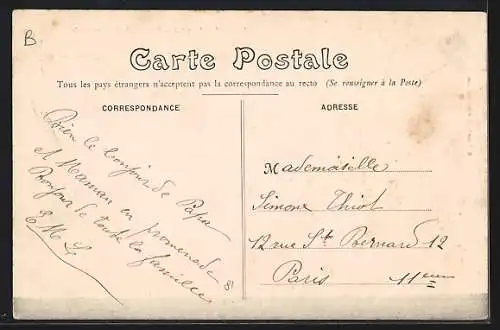 B
Carte Postale
Tous les pays étrangers n'acceptent pas la correspondance au recto (Se renseigner à la Poste)
CORRESPONDANCE
Bien le bonjour de Papa
et Maman en promenade
Bonjour de toute la famille
ADRESSE
Mademoiselle
Simone Thiot
12 rue St Bernard 12
Paris 11eme